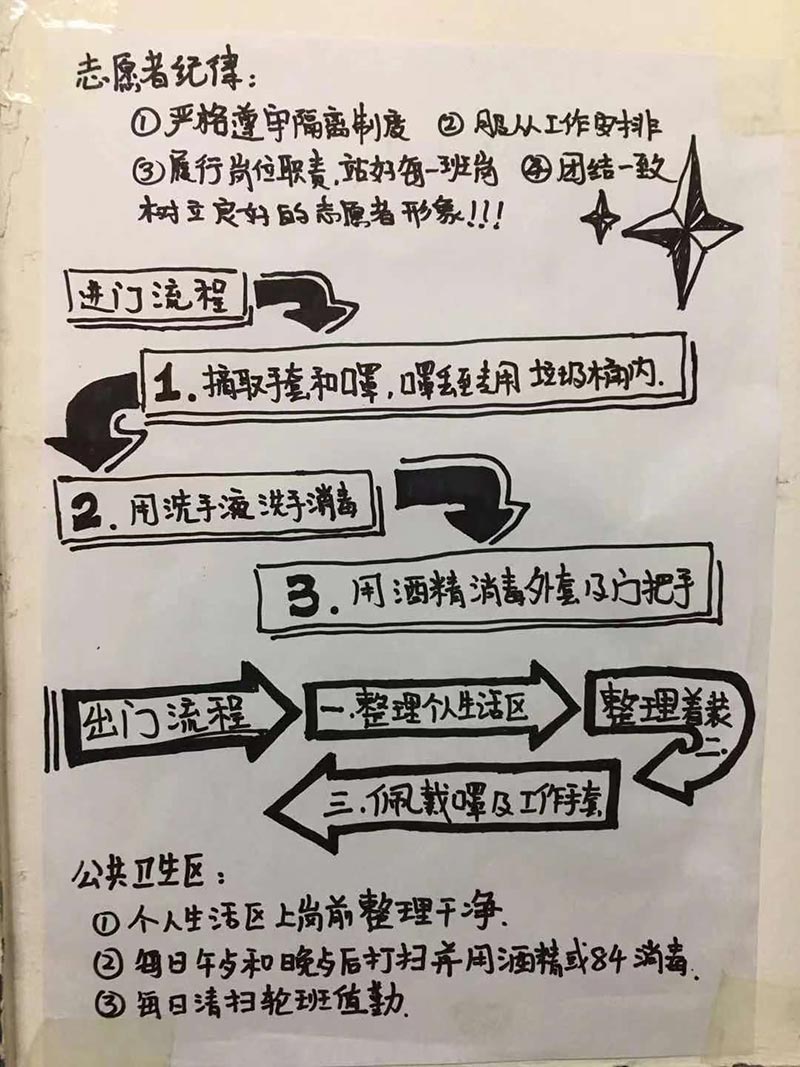 志愿者纪律：
①严格遵守隔离制度 ②服从工作安排
③履行岗位职责,站好每一班岗 ④团结一致
树立良好的志愿者形象!!!
进门流程
1.摘取手套和口罩,口罩丢至专用垃圾桶内.
2.用洗手液洗手消毒
3.用酒精消毒外套及门把手
出门流程
一.整理个人生活区
整理着装
二.
三.佩戴口罩及工作手套
公共卫生区：
①个人生活区上岗前整理干净.
②每日午点和晚点后打扫并用酒精或84消毒.
③每日清扫轮班值勤.